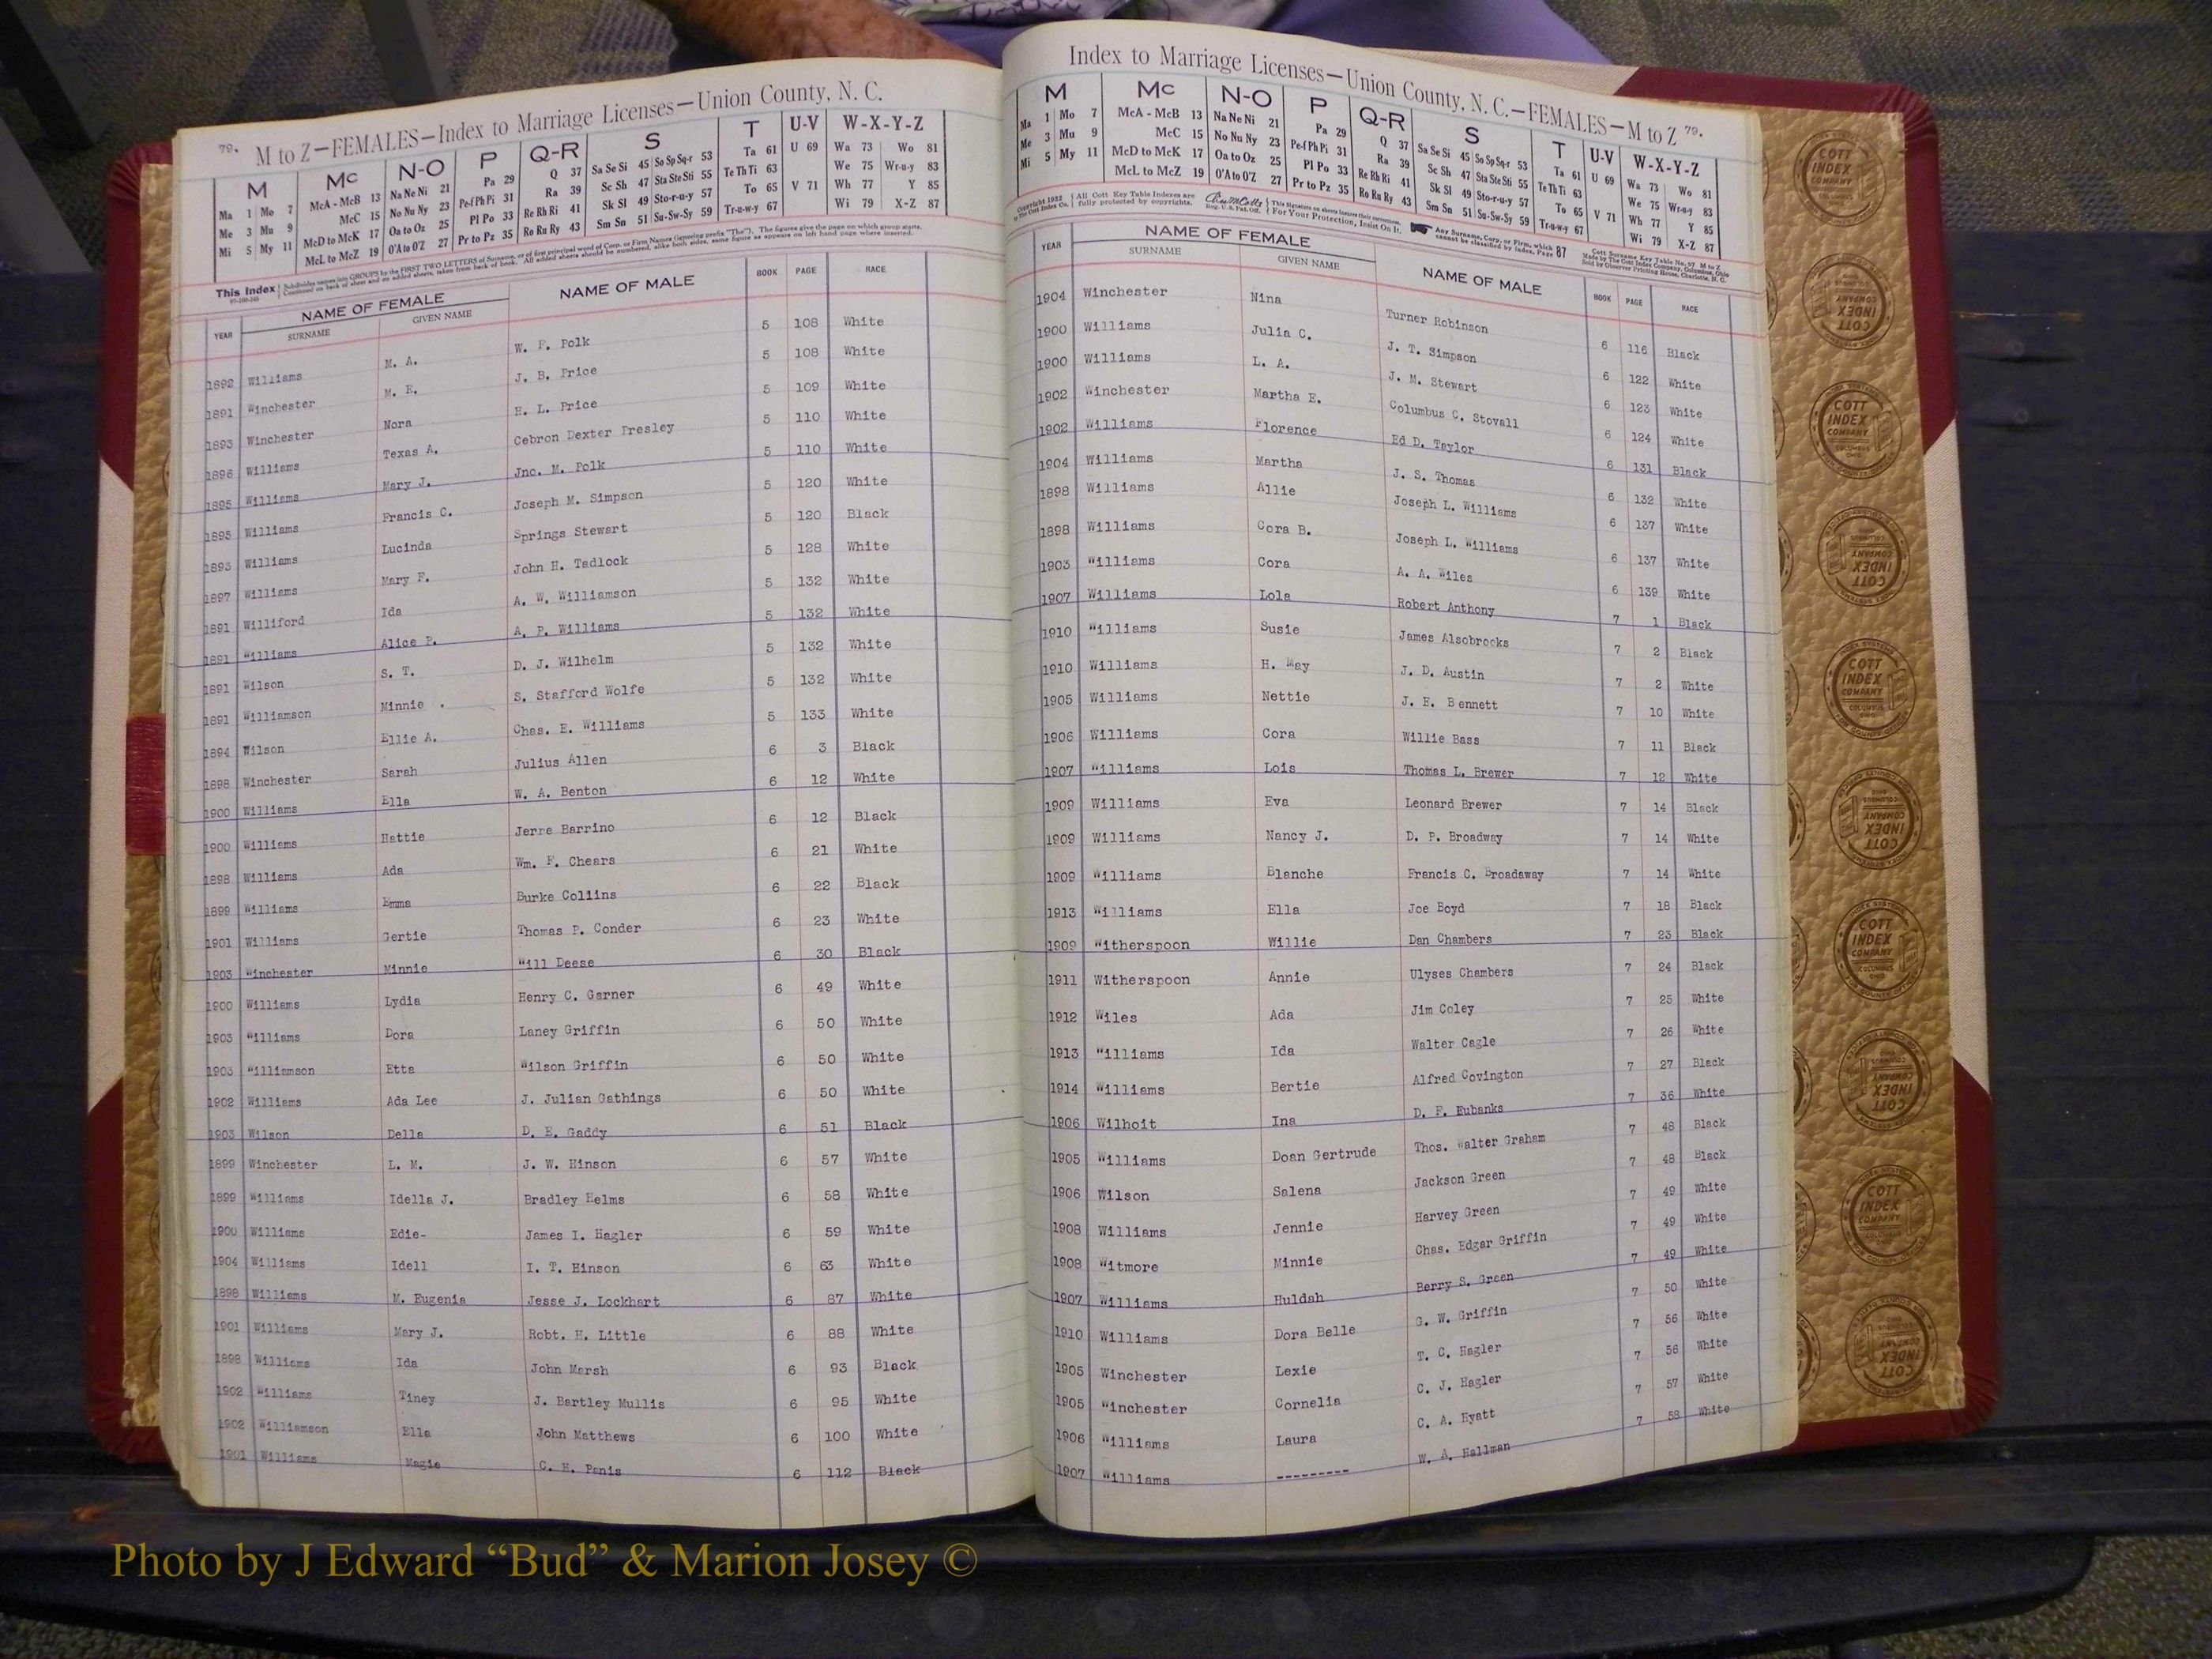 79. M to Z—FEMALES—Index to Marriage Licenses—Union County, N. C.
M Mc N-O P Q-R S T U-V W-X-Y-Z
Ma 1 Mo 7 McA - McB 13 Na Ne Ni 21 Pa 29 Q 37 Sa Se Si 45 So Sp Sq-r 53 Ta 61 U 69 Wa 73 Wo 81
Me 3 Mu 9 McC 15 No Nu Ny 23 Pe-f Ph Pi 31 Ra 39 Sc Sh 47 Sta Ste Sti 55 Te Th Ti 63 We 75 Wr-u-y 83
Mi 5 My 11 McD to McK 17 Oa to Oz 25 Pl Po 33 Re Rh Ri 41 Sk Sl 49 Sto-r-u-y 57 To 65 V 71 Wh 77 Y 85
McL to McZ 19 O'A to O'Z 27 Pr to Pz 35 Ro Ru Ry 43 Sm Sn 51 Su-Sw-Sy 59 Tr-u-w-y 67 Wi 79 X-Z 87
This Index Subdivides names into GROUPS by the FIRST TWO LETTERS of Surname, or of first principal word of Corp. or Firm Names (ignoring prefix "The"). The figures give the page on which group starts.
Continued on back of sheet and on added sheets, taken from back of book. All added sheets should be numbered, alike both sides, same figure as appears on left hand page where inserted.
YEAR NAME OF FEMALE NAME OF MALE BOOK PAGE RACE
SURNAME GIVEN NAME
1892 Williams M. A. W. F. Polk 5 108 White
1891 Winchester M. E. J. B. Price 5 108 White
1893 Winchester Nora H. L. Price 5 109 White
1896 Williams Texas A. Cebron Dexter Presley 5 110 White
1895 Williams Mary J. Jno. M. Polk 5 110 White
1895 Williams Francis C. Joseph M. Simpson 5 120 White
1893 Williams Lucinda Springs Stewart 5 120 Black
1897 Williams Mary F. John H. Tadlock 5 128 White
1891 Williford Ida A. W. Williamson 5 132 White
1891 Williams Alice P. A. P. Williams 5 132 White
1891 Wilson S. T. D. J. Wilhelm 5 132 White
1891 Williamson Minnie . S. Stafford Wolfe 5 132 White
1894 Wilson Ellie A. Chas. E. Williams 5 133 White
1898 Winchester Sarah Julius Allen 6 3 Black
1900 Williams Ella W. A. Benton 6 12 White
1900 Williams Hattie Jerre Barrino 6 12 Black
1898 Williams Ada Wm. F. Chears 6 21 White
1899 Williams Emma Burke Collins 6 22 Black
1901 Williams Gertie Thomas P. Conder 6 23 White
1903 Winchester Minnie Will Deese 6 30 Black
1900 Williams Lydia Henry C. Garner 6 49 White
1903 Williams Dora Laney Griffin 6 50 White
1903 Williamson Etta Wilson Griffin 6 50 White
1902 Williams Ada Lee J. Julian Gathings 6 50 White
1903 Wilson Della D. E. Gaddy 6 51 Black
1899 Winchester L. M. J. W. Hinson 6 57 White
1899 Williams Idella J. Bradley Helms 6 58 White
1900 Williams Edie- James I. Hagler 6 59 White
1904 Williams Idell I. T. Hinson 6 63 White
1898 Williams M. Eugenia Jesse J. Lockhart 6 87 White
1901 Williams Mary J. Robt. H. Little 6 88 White
1898 Williams Ida John Marsh 6 93 Black
1902 Williams Tiney J. Bartley Mullis 6 95 White
1902 Williamson Ella John Matthews 6 100 White
1901 Williams Magie C. H. Penis 6 112 Black
Index to Marriage Licenses—Union County, N. C.—FEMALES—M to Z 79.
M Mc N-O P Q-R S T U-V W-X-Y-Z
Ma 1 Mo 7 McA - McB 13 Na Ne Ni 21 Pa 29 Q 37 Sa Se Si 45 So Sp Sq-r 53 Ta 61 U 69 Wa 73 Wo 81
Me 3 Mu 9 McC 15 No Nu Ny 23 Pe-f Ph Pi 31 Ra 39 Sc Sh 47 Sta Ste Sti 55 Te Th Ti 63 We 75 Wr-u-y 83
Mi 5 My 11 McD to McK 17 Oa to Oz 25 Pl Po 33 Re Rh Ri 41 Sk Sl 49 Sto-r-u-y 57 To 65 V 71 Wh 77 Y 85
McL to McZ 19 O'A to O'Z 27 Pr to Pz 35 Ro Ru Ry 43 Sm Sn 51 Su-Sw-Sy 59 Tr-u-w-y 67 Wi 79 X-Z 87
Copyright 1932 by The Cott Index Co. All Cott Key Table Indexes are fully protected by copyrights. Reg. U.S. Pat. Off. For Your Protection, Insist On It. Any Surname, Corp. or Firm, which cannot be classified by index, Page 87
Made by The Cott Index Company, Columbus, Ohio
Sold by Observer Printing House, Charlotte, N. C.
YEAR NAME OF FEMALE NAME OF MALE BOOK PAGE RACE
SURNAME GIVEN NAME
1904 Winchester Nina Turner Robinson 6 116 Black
1900 Williams Julia C. J. T. Simpson 6 122 White
1900 Williams L. A. J. M. Stewart 6 123 White
1902 Winchester Martha E. Columbus C. Stovall 6 124 White
1902 Williams Florence Ed D. Taylor 6 131 Black
1904 Williams Martha J. S. Thomas 6 132 White
1898 Williams Allie Joseph L. Williams 6 137 White
1898 Williams Cora B. Joseph L. Williams 6 137 White
1903 Williams Cora A. A. Wiles 6 139 White
1907 Williams Lola Robert Anthony 7 1 Black
1910 Williams Susie James Alsobrooks 7 2 Black
1910 Williams H. May J. D. Austin 7 2 White
1905 Williams Nettie J. E. Bennett 7 10 White
1906 Williams Cora Willie Bass 7 11 Black
1907 Williams Lois Thomas L. Brewer 7 12 White
1909 Williams Eva Leonard Brewer 7 14 Black
1909 Williams Nancy J. D. P. Broadway 7 14 White
1909 Williams Blanche Francis C. Broadaway 7 14 White
1913 Williams Ella Joe Boyd 7 18 Black
1909 Witherspoon Willie Dan Chambers 7 23 Black
1911 Witherspoon Annie Ulyses Chambers 7 24 Black
1912 Wiles Ada Jim Coley 7 25 White
1913 Williams Ida Walter Cagle 7 26 White
1914 Williams Bertie Alfred Covington 7 27 Black
1906 Wilhoit Ina D. F. Eubanks 7 36 White
1905 Williams Doan Gertrude Thos. Walter Graham 7 48 Black
1906 Wilson Salena Jackson Green 7 48 Black
1908 Williams Jennie Harvey Green 7 49 White
1908 Witmore Minnie Chas. Edgar Griffin 7 49 White
1907 Williams Huldah Berry S. Green 7 49 White
1910 Williams Dora Belle G. W. Griffin 7 50 White
1905 Winchester Lexie T. C. Hagler 7 56 White
1905 Winchester Cornelia C. J. Hagler 7 56 White
1906 Williams Laura C. A. Hyatt 7 57 White
1907 Williams --------- W. A. Hallman 7 58 White
COTT INDEX COMPANY COLUMBUS OHIO
Photo by J Edward “Bud” & Marion Josey ©